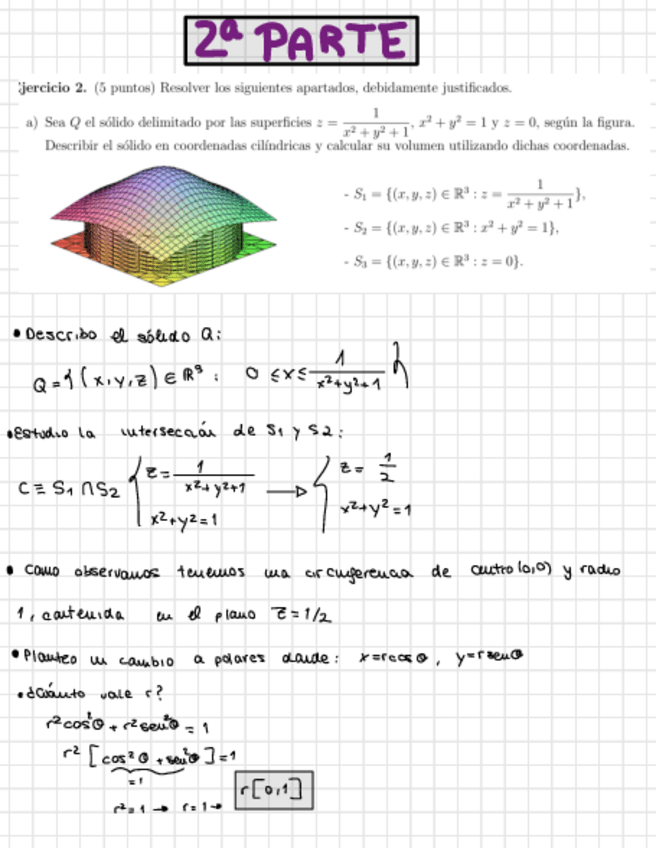 2ª PARTE
jercicio 2. (5 puntos) Resolver los siguientes apartados, debidamente justificados.
a) Sea Q el sólido delimitado por las superficies z = 1/(x² + y² + 1), x² + y² = 1 y z = 0, según la figura.
Describir el sólido en coordenadas cilíndricas y calcular su volumen utilizando dichas coordenadas.
- S₁ = {(x, y, z) ∈ ℝ³ : z = 1/(x² + y² + 1)},
- S₂ = {(x, y, z) ∈ ℝ³ : x² + y² = 1},
- S₃ = {(x, y, z) ∈ ℝ³ : z = 0}.
• Describo el sólido Q:
Q = { (x, y, z) ∈ ℝ³ : 0 ≤ x ≤ 1/(x²+y²+1) }
• Estudio la intersección de S1 y S2:
C ≡ S₁ ∩ S₂ { z = 1/(x²+y²+1) → { z = 1/2
x²+y²=1 x²+y²=1
• Como observamos tenemos una circunferencia de centro (0,0) y radio
1, contenida en el plano z = 1/2
• Planteo un cambio a polares donde: x=rcosθ, y=rsenθ
• ¿Cuánto vale r?
r²cos²θ + r²sen²θ = 1
r² [cos²θ + sen²θ] = 1
=1
r²=1 → r=1→ r[0,1]